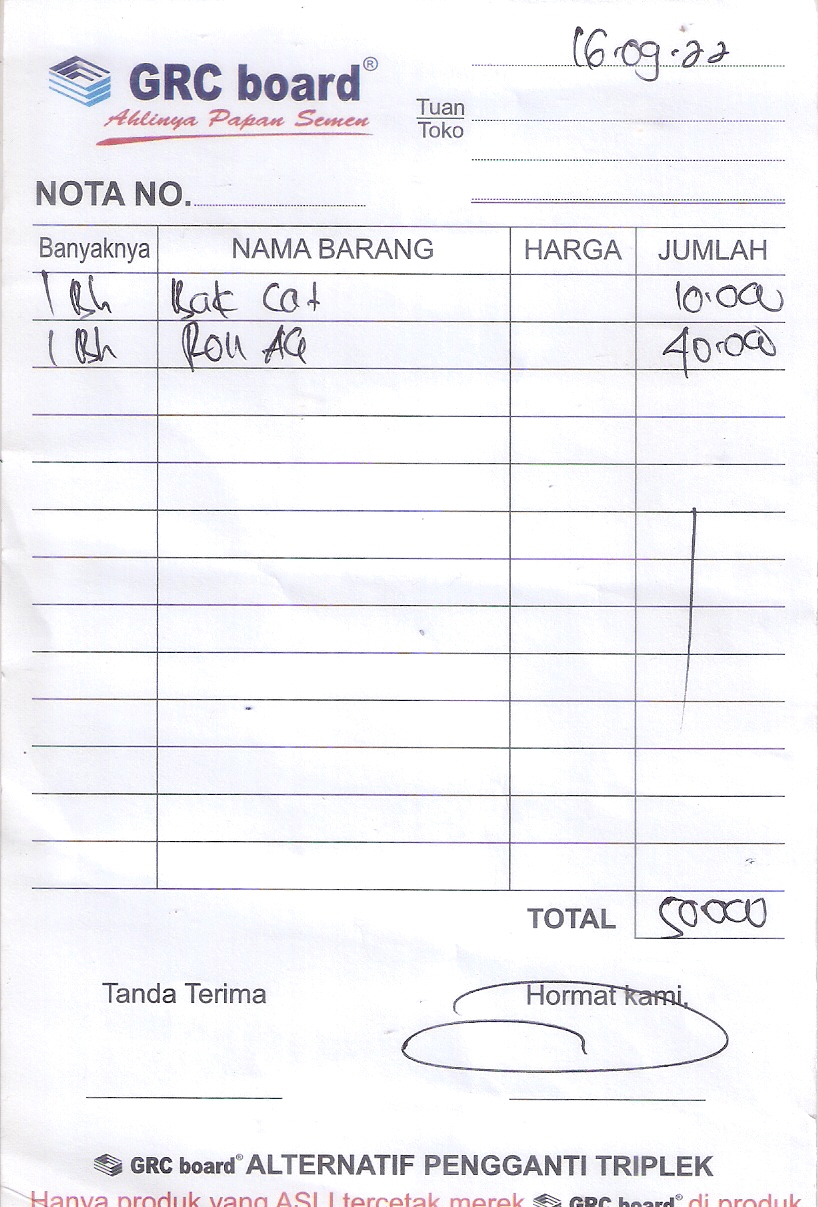 16.09.22
GRC board®
Ahlinya Papan Semen
Tuan
Toko
NOTA NO.
Banyaknya NAMA BARANG HARGA JUMLAH
1 Bh Bak Cat 10.000
1 Bh Roll 40.000
TOTAL 50.000
Tanda Terima Hormat kami,
GRC board® ALTERNATIF PENGGANTI TRIPLEK
Hanya produk yang ASLI tercetak merek GRC board® di produk